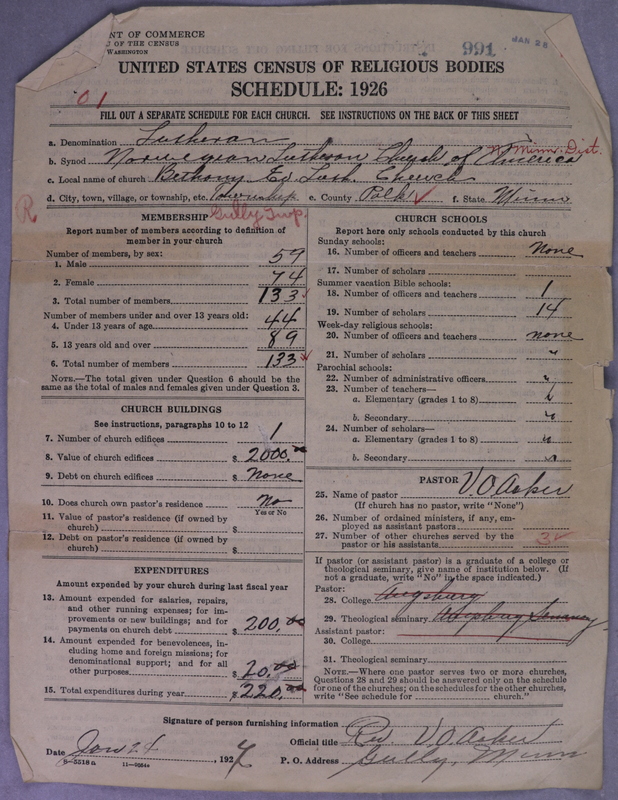 NT OF COMMERCE
U OF THE CENSUS
WASHINGTON
991
JAN 28
UNITED STATES CENSUS OF RELIGIOUS BODIES
SCHEDULE: 1926
01
FILL OUT A SEPARATE SCHEDULE FOR EACH CHURCH. SEE INSTRUCTIONS ON THE BACK OF THIS SHEET
a. Denomination Lutheran
b. Synod Norwegian Lutheran Church of America N. Minn. Dist.
c. Local name of church Bethany Ev. Luth. Church
d. City, town, village, or township, etc. Township e. County Polk ✓ f. State Minn
R Gully Twp.
MEMBERSHIP
Report number of members according to definition of
member in your church
Number of members, by sex:
1. Male 59
2. Female 74
3. Total number of members 133
Number of members under and over 13 years old:
4. Under 13 years of age 44
5. 13 years old and over 89
6. Total number of members 133
NOTE.—The total given under Question 6 should be
same as the total of males and females given under Question 3.
CHURCH BUILDINGS
See instructions, paragraphs 10 to 12
7. Number of church edifices 1
8. Value of church edifices $ 2000.00
9. Debt on church edifices $ None
10. Does church own pastor's residence No
Yes or No
11. Value of pastor's residence (if owned by
church) $
12. Debt on pastor's residence (if owned by
church) $
EXPENDITURES
Amount expended by your church during last fiscal year
13. Amount expended for salaries, repairs,
and other running expenses; for im-
provements or new buildings; and for
payments on church debt $ 200.00
14. Amount expended for benevolences, in-
cluding home and foreign missions; for
denominational support; and for all
other purposes $ 20.00
15. Total expenditures during year $ 220.00
CHURCH SCHOOLS
Report here only schools conducted by this church
Sunday schools:
16. Number of officers and teachers None
17. Number of scholars
Summer vacation Bible schools:
18. Number of officers and teachers 1
19. Number of scholars 14
Week-day religious schools:
20. Number of officers and teachers none
21. Number of scholars "
Parochial schools:
22. Number of administrative officers "
23. Number of teachers—
a. Elementary (grades 1 to 8)
b. Secondary "
24. Number of scholars—
a. Elementary (grades 1 to 8) "
b. Secondary "
PASTOR
25. Name of pastor V. O. Aaker
(If church has no pastor, write "None")
26. Number of ordained ministers, if any, em-
ployed as assistant pastors
27. Number of other churches served by the
pastor or his assistants
If pastor (or assistant pastor) is a graduate of a college or
theological seminary, give name of institution below. (If
not a graduate, write "No" in the space indicated.)
Pastor:
28. College Augsburg
29. Theological seminary Augsburg Seminary
Assistant pastor:
30. College
31. Theological seminary
NOTE.—Where one pastor serves two or more churches,
Questions 28 and 29 should be answered only on the schedule
for one of the churches; on the schedules for the other churches,
write "See schedule for church."
Signature of person furnishing information
Official title Rev V. O. Aaker
Date Jan 24 1927 P. O. Address Gully, Minn
8—5518a 11—9064